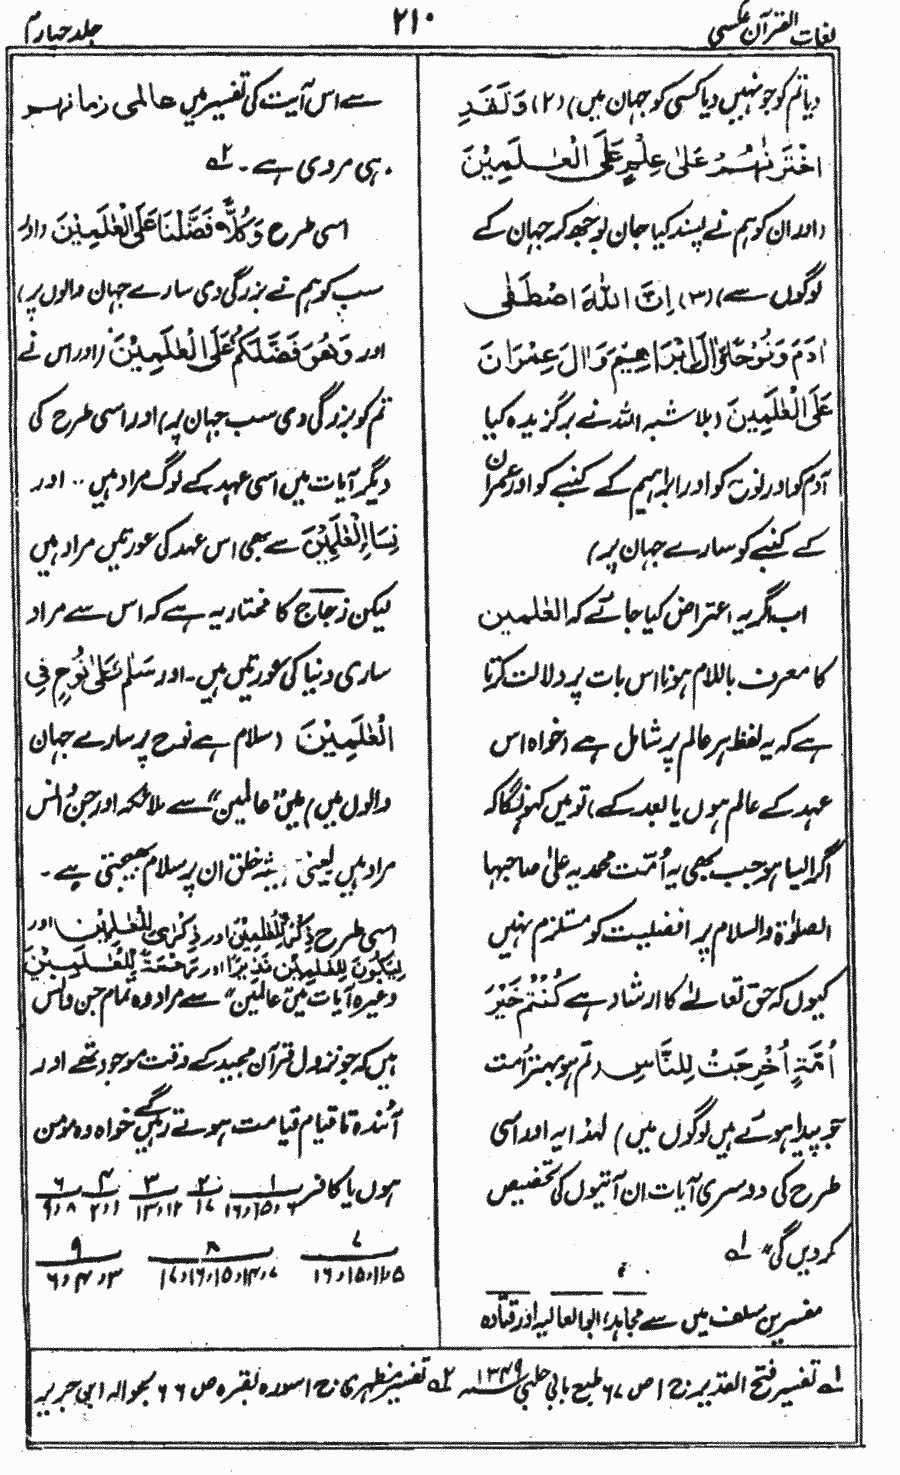 لغات القرآن عکسی
۲۱۰
جلد چہارم
دیا تم کو جو نہیں دیا کسی کو جہان میں) (۲) وَلَقَدِ
اخْتَرْنٰهُمْ عَلٰی عِلْمٍ عَلَی الْعٰلَمِیْنَ
(اور ان کو ہم نے پسند کیا جان بوجھ کر جہان کے
لوگوں سے) (۳) اِنَّ اللّٰهَ اصْطَفٰی
اٰدَمَ وَنُوْحًا وَّاٰلَ اِبْرٰهِیْمَ وَاٰلَ عِمْرَانَ
عَلَی الْعٰلَمِیْنَ (بلاشبہ اللہ نے برگزیدہ کیا
آدم کو اور نوح کو اور ابراہیم کے کنبے کو اور عمران
کے کنبے کو سارے جہان پر)
اب اگر یہ اعتراض کیا جائے کہ العٰلمین
کا معرف باللام ہونا اس بات پر دلالت کرتا
ہے کہ یہ لفظ ہر عالم پر شامل ہے (خواہ اس
عہد کے عالم ہوں یا بعد کے) تو میں کہونگا کہ
اگر ایسا ہو جب بھی یہ اُمّت محمدیہ علیٰ صاحبہا
الصلوٰة والسلام پر افضلیت کو مستلزم نہیں
کیوں کہ حق تعالیٰ کا ارشاد ہے کُنْتُمْ خَیْرَ
اُمَّةٍ اُخْرِجَتْ لِلنَّاسِ (تم ہو بہتر اُمت
جو پیدا ہوئے ہیں لوگوں میں) لہٰذا یہ اور اسی
طرح کی دوسری آیات ان آیتوں کی تخصیص
کردیں گی" ۱ھ
مفسرین سلف میں سے مجاہد، ابوالعالیہ اور قتادہ
سے اس آیت کی تفسیر میں عالمی زمانہم
ہی مروی ہے۔ ۲ھ
اسی طرح وَکُلًّا فَضَّلْنَا عَلَی الْعٰلَمِیْنَ (اور
سب کو ہم نے بزرگی دی سارے جہان والوں پر)
اور وَهُوَ فَضَّلَکُمْ عَلَی الْعٰلَمِیْنَ (اور اس نے
تم کو بزرگی دی سب جہان پر) اور اسی طرح کی
دیگر آیات میں اسی عہد کے لوگ مراد ہیں۔۔ اور
نِسَاءِ الْعٰلَمِیْنَ سے بھی اس عہد کی عورتیں مراد ہیں
لیکن زجاج کا مختار یہ ہے کہ اس سے مراد
ساری دنیا کی عورتیں ہیں۔ اور سَلٰمٌ عَلٰی نُوْحٍ فِی
الْعٰلَمِیْنَ (سلام ہے نوح پر سارے جہان
والوں میں) میں "عالمین" سے ملائکہ اور جن و انس
مراد ہیں یعنی خلق ان پر سلام بھیجتی ہے۔
اسی طرح ذِکْرٌ لِّلْعٰلَمِیْنَ اور ذِکْرٰی لِلْعٰلَمِیْنَ اور
لِیَکُوْنَ لِلْعٰلَمِیْنَ نَذِیْرًا اور رَحْمَةً لِّلْعٰلَمِیْنَ
وغیرہ آیات میں "عالمین" سے مراد وہ تمام جن و انس
ہیں کہ جو نزول قرآن مجید کے وقت موجود تھے اور
آئندہ تا قیام قیامت ہوتے رہیں گے خواہ وہ مومن
ہوں یا کافر ۱ ۲ ۳ ۴ ۶
۷ ۸ ۹
۱ھ تفسیر فتح القدیر ج ۱ ص ۶۷ طبع بابی حلبی ۱۳۴۹ھ ۲ھ تفسیر مظہری ج ۱ سورہ بقرہ ص ۶۶ بحوالہ ابن جریر